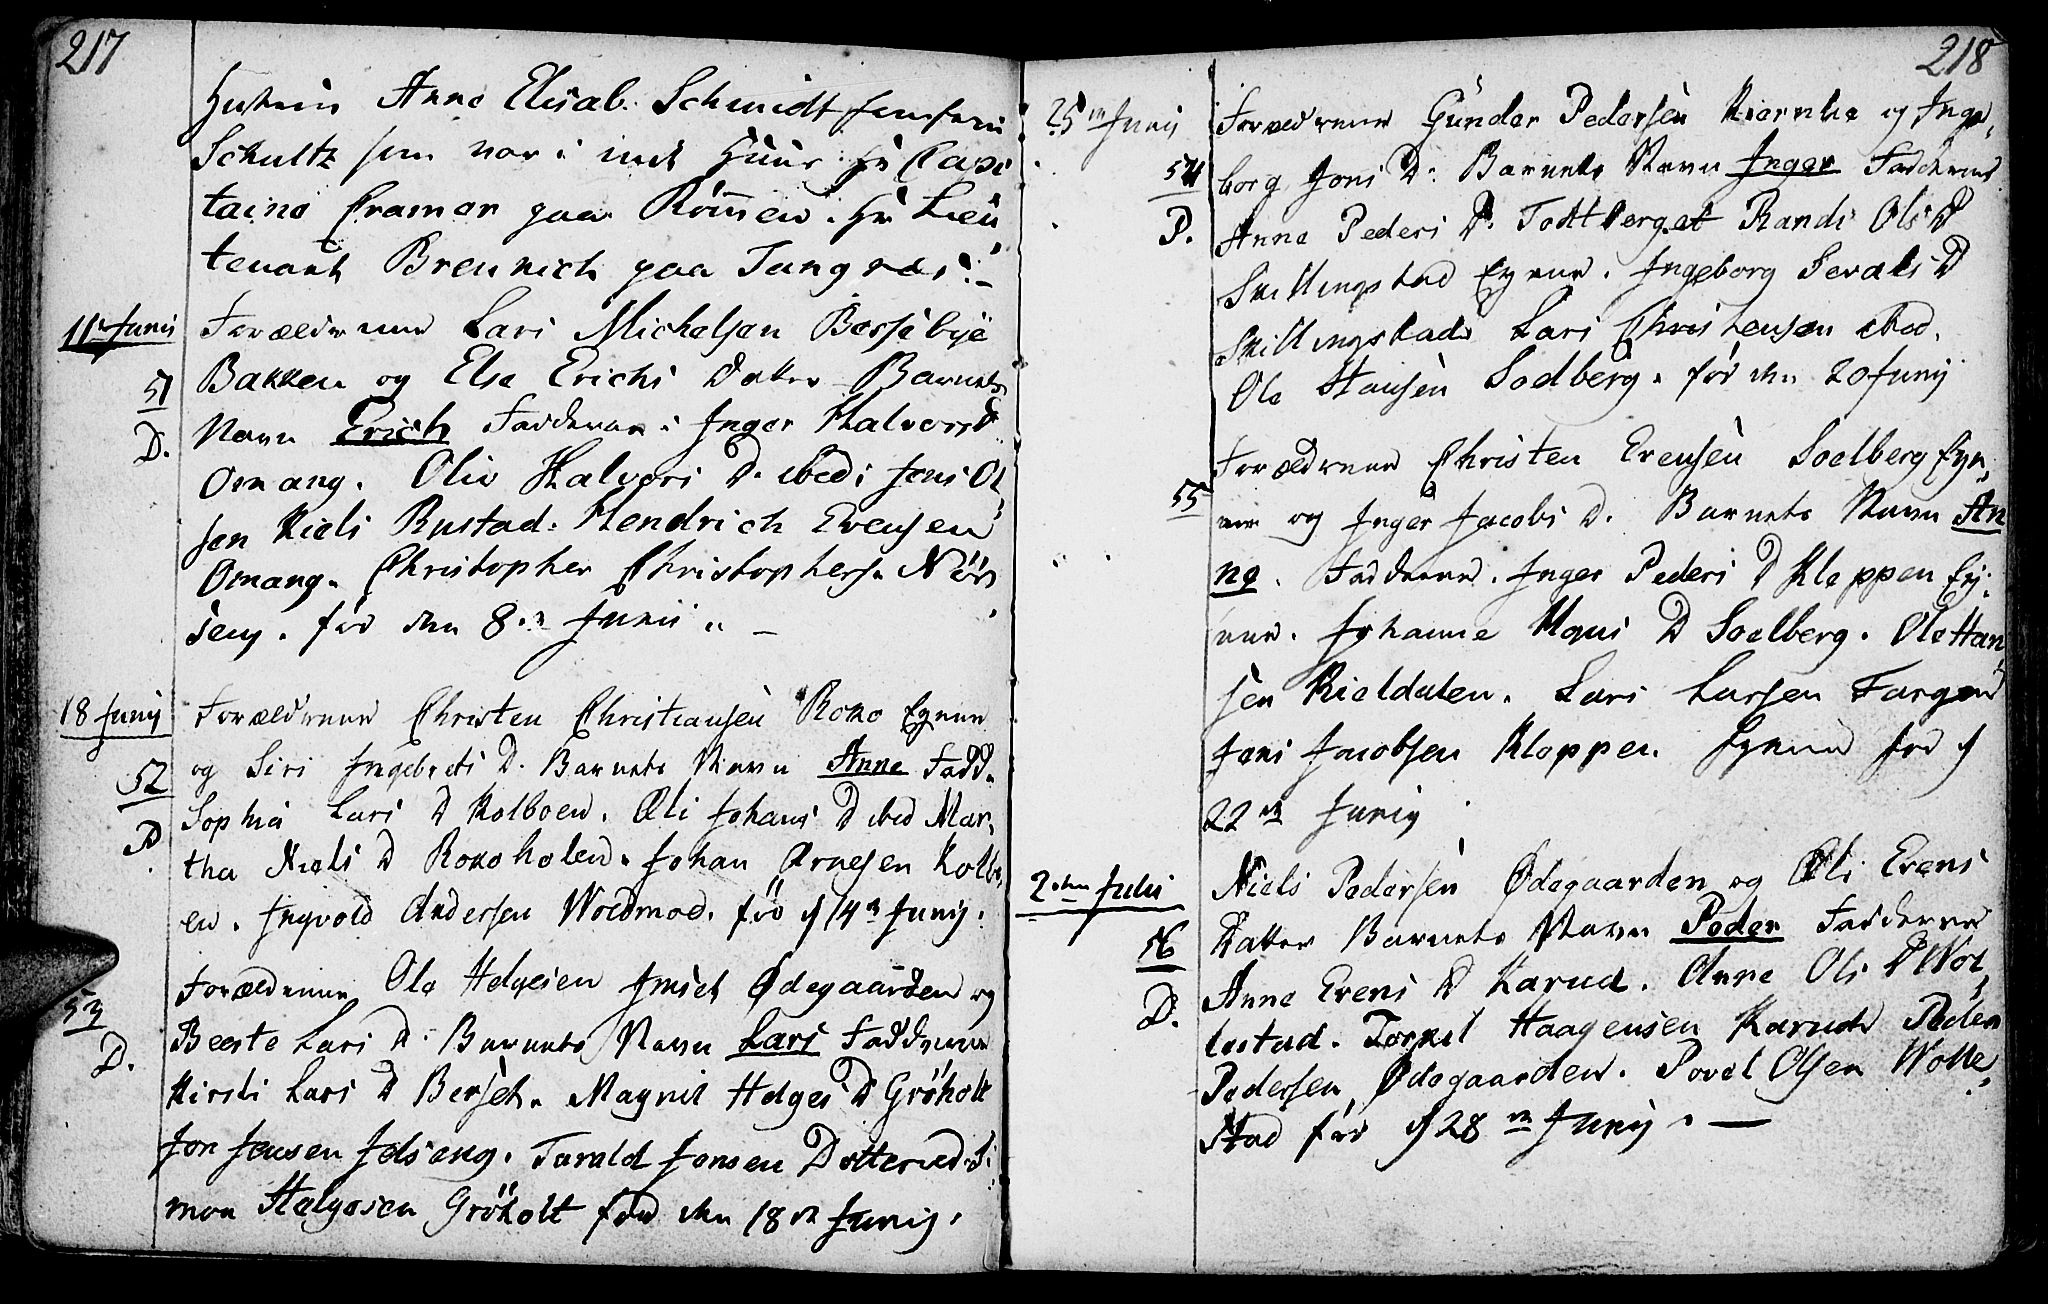 217
Hustrue Anne Elisab. Schmidt Jomfrue
Schultz som var i mit Huus. Hr Capi
taine Cramer paa Römmen. Hr Lieu
tenant Breunich paa Tangnæs.
11te Junii
Forældrene Lars Michelsen Børsebÿe
Bakken og Else Erichs Datter Barnets
51
Navn Erich Fadderne: Inger Halvors D
D.
Omang. Oliv Halvors D. ibed: Jens Ol
sen Niels Rustad. Hendrich Evensen
Omang. Christopher Christophers. Nör
seng. föd den 8.n Junii
18 Junij
Forældrene Christen Christiansen Roko Eÿene
og Siri Ingebrets D. Barnets Navn Anne Fadd.
52
Sophia Lars D Kolboen. Oli Johans D ibed Mar
D
tha Niels D Rokoholen. Johan Arnesen Kolbo
en. Ingvold Andersen Woldmoe. föd d 14n Junij.
Forældrene Ole Helgesen Imset Ødegaarden og
53
Beeste Lars D. Barnets Navn Lars Fadderne
D.
Kirsti Lars D Berset. Magnil Helges D Gröholt
Jon Jensen Idseng. Tarald Jonsen Dotterud. Si
mon Helgesen Gröholt föd den 18n Junij.
218
25de Junij
Forældrene Gunder Pedersen Kiernlie og Inge
54
borg Jons D. Barnets Navn Inger Fadderne
D.
Anne Peders D. Toftberget Randi Ols D
Skillingstad Eÿene. Ingeborg Sevals D
Skillingstad Lars Christensen ibed.
Ole Hansen Sodberg. föd den 20 Junij
Forældrene Christen Evensen Soelberg Eÿe
55
ne og Inger Jacobs D. Barnets Navn An
ne. Fadderne. Inger Peders D Kloppen Eÿ
ene. Johanne Mons D Soelberg. Ole Han
sen Kieldalen. Lars Larsen
Jens Jacobsen Kloppen. Eÿene föd d
22n Junij
2den Julii
Niels Pedersen Ødegaarden og Oli Evens
56
Datter Barnets Navn Peder Fadderne
D.
Anne Evens D Karud. Anne Ols D Wol
lestad. Torkil Haagensen Karud Peder
Pedersen Ødegaarden. Povel Olsen Wolle
stad föd d 28n Junij.